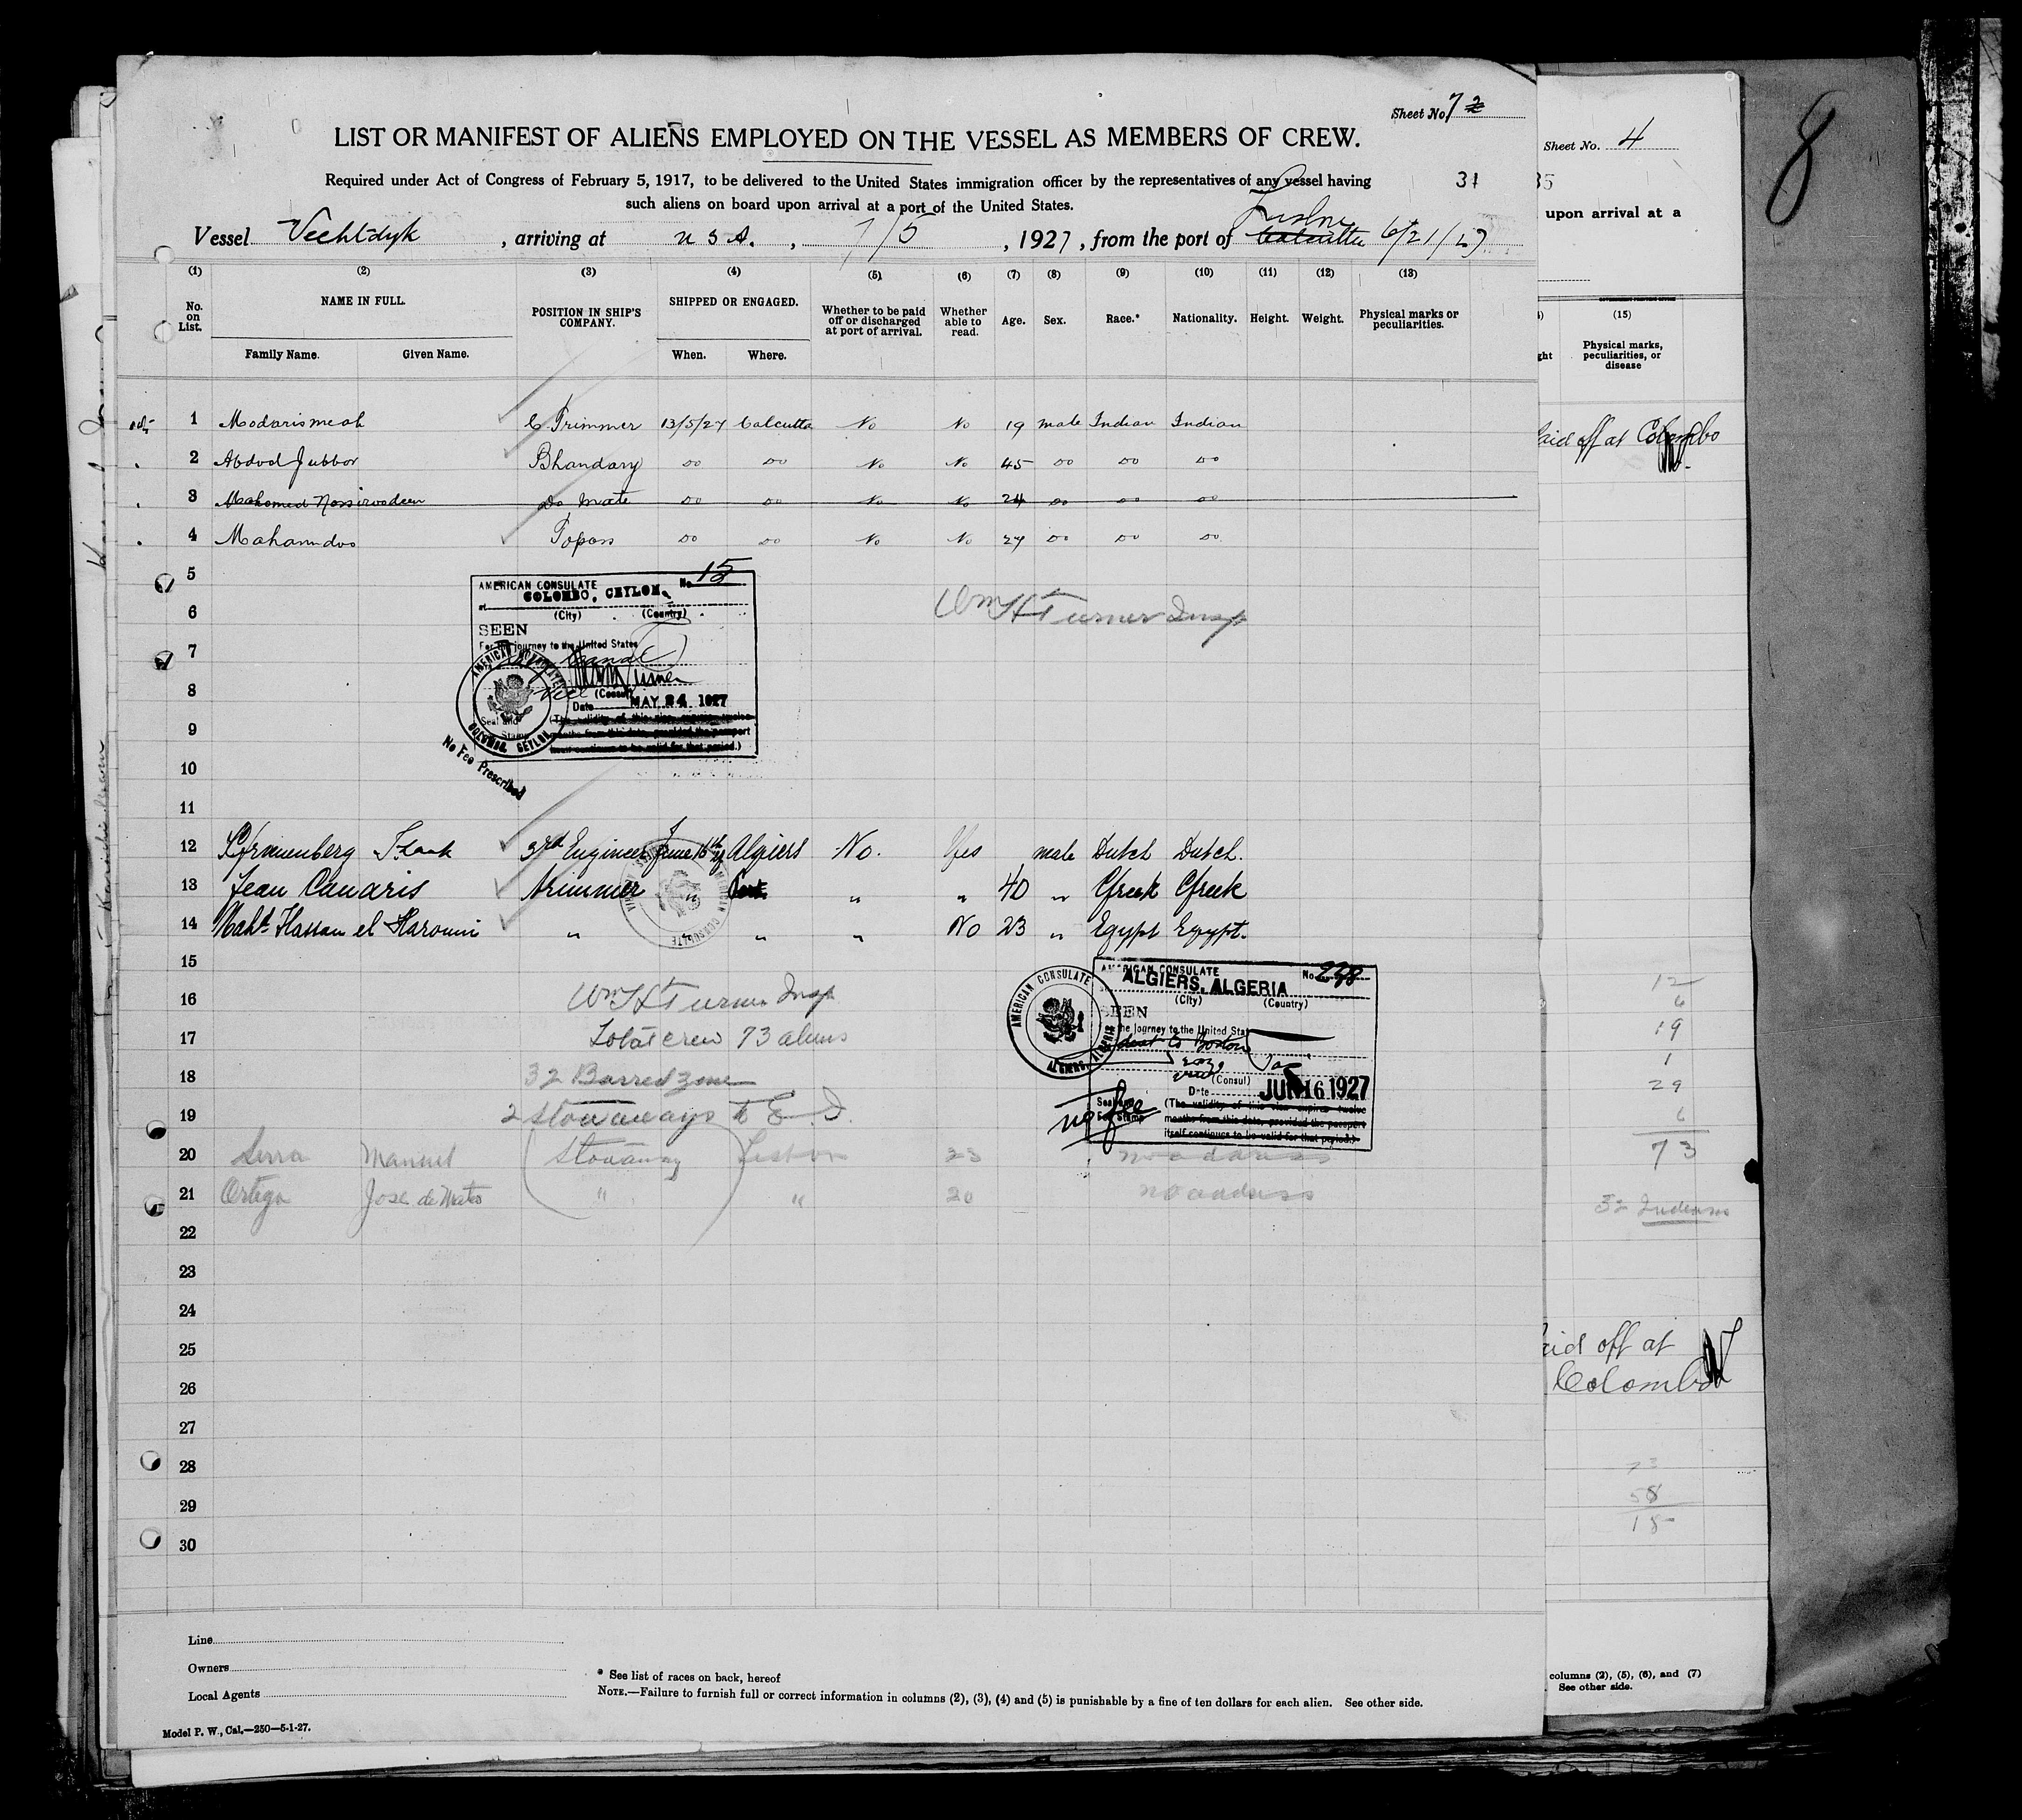 Sheet No. 7 2
LIST OR MANIFEST OF ALIENS EMPLOYED ON THE VESSEL AS MEMBERS OF CREW.
Required under Act of Congress of February 5, 1917, to be delivered to the United States immigration officer by the representatives of any vessel having
such aliens on board upon arrival at a port of the United States.
31
Vessel Vechtdyk, arriving at U S A., 7/5, 1927, from the port of Calcutta 6/21/27
(1) (2) (3) (4) (5) (6) (7) (8) (9) (10) (11) (12) (13)
No. on List. NAME IN FULL. POSITION IN SHIP'S COMPANY. SHIPPED OR ENGAGED. Whether to be paid off or discharged at port of arrival. Whether able to read. Age. Sex. Race.* Nationality. Height. Weight. Physical marks or peculiarities.
Family Name. Given Name. When. Where.
1 Modarismeah C Trimmer 13/5/27 Calcutta No No 19 male Indian Indian
2 Abdod Jubbor Bhandary do do No No 45 do do do
3 Mahomed Nossirvodeen Do Mate do do No No 24 do do do
4 Mahamdoo Topass do do No No 27 do do do
5
AMERICAN CONSULATE No. 15
at COLOMBO, CEYLON.
(City) (Country)
SEEN
For the journey to the United States
Vice (Consul)
Date MAY 24 1927
Seal and Stamp (The validity of this visa expires twelve
months from this date, provided the passport
itself continues to be valid for that period.)
AMERICAN CONSULATE COLOMBO, CEYLON
No Fee Prescribed
6 Wm H Turner Insp
7
8
9
10
11
12 3rd Engineer June 16th 27 Algiers No. Yes male Dutch Dutch.
13 Jean Canaris trimmer " " 40 " Greek Greek
14 Mahd. Hassan el Harouni " " " " No 23 " Egypt Egypt.
15
AMERICAN CONSULATE No. 238
ALGIERS, ALGERIA
(City) (Country)
SEEN
the journey to the United Stat
(Consul)
Date JUN 16 1927
Seal and Fee Stamp (The validity of this visa expires twelve
months from this date, provided the passport
itself continues to be valid for that period.)
AMERICAN CONSULATE ALGIERS, ALGERIA
no fee
16 Wm H Turner Insp
17 Total crew 73 aliens
18 32 Barred zone
19 2 Stowaways
20 Serra Manuel (Stowaway) Lisbon 23 no address
21 Ortega Jose de Matos " " 20 no address
22
23
24
25
26
27
28
29
30
Line
Owners
Local Agents
* See list of races on back, hereof
NOTE.—Failure to furnish full or correct information in columns (2), (3), (4) and (5) is punishable by a fine of ten dollars for each alien. See other side.
Model P. W., Cal.—250—5-1-27.
Sheet No. 4
35
upon arrival at a
(15)
ght
Physical marks, peculiarities, or disease
Paid off at Colombo
12
6
19
1
29
6
73
32 Indians
Paid off at
Colombo
73
58
15
columns (2), (5), (6), and (7)
See other side.
8